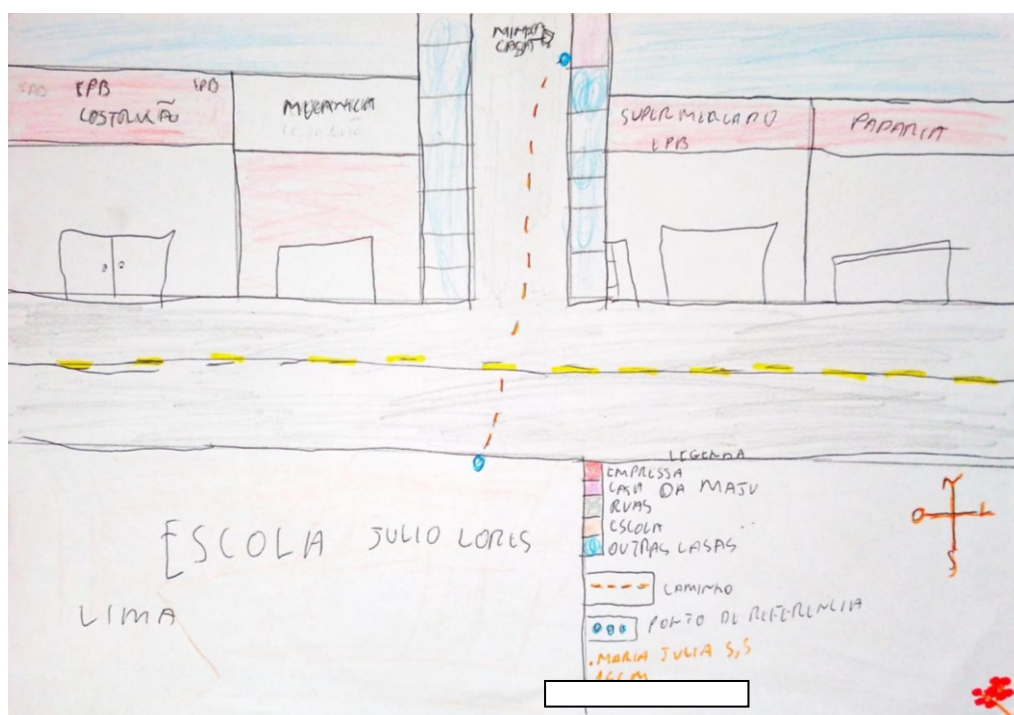 MINHA
CASA
EPB
EPB
COSTRUÇÃO
MECANICA
SUPERMERCADO
EPB
PADARIA
ESCOLA JULIO LORES
LIMA
LEGENDA
EMPRESSA
CASA DA MAJU
RUAS
ESCOLA
OUTRAS CASAS
CAMINHO
PONTO DE REFERENCIA
.MARIA JULIA S,S
N
O L
S